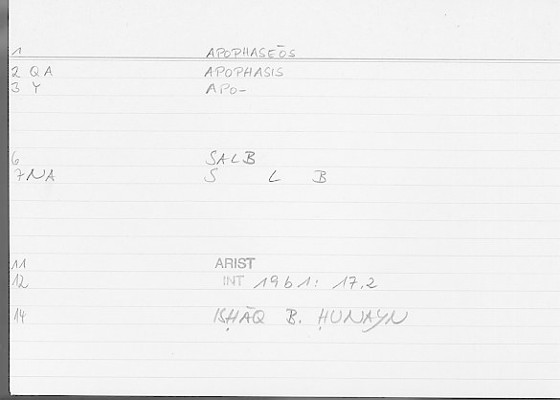 1 APOPHASEŌS
2 QA APOPHASIS
3 Y APO-
6 SALB
7 NA S L B
11 ARIST
12 INT 19b1: 17.2
14 ISḤĀQ B. ḤUNAYN